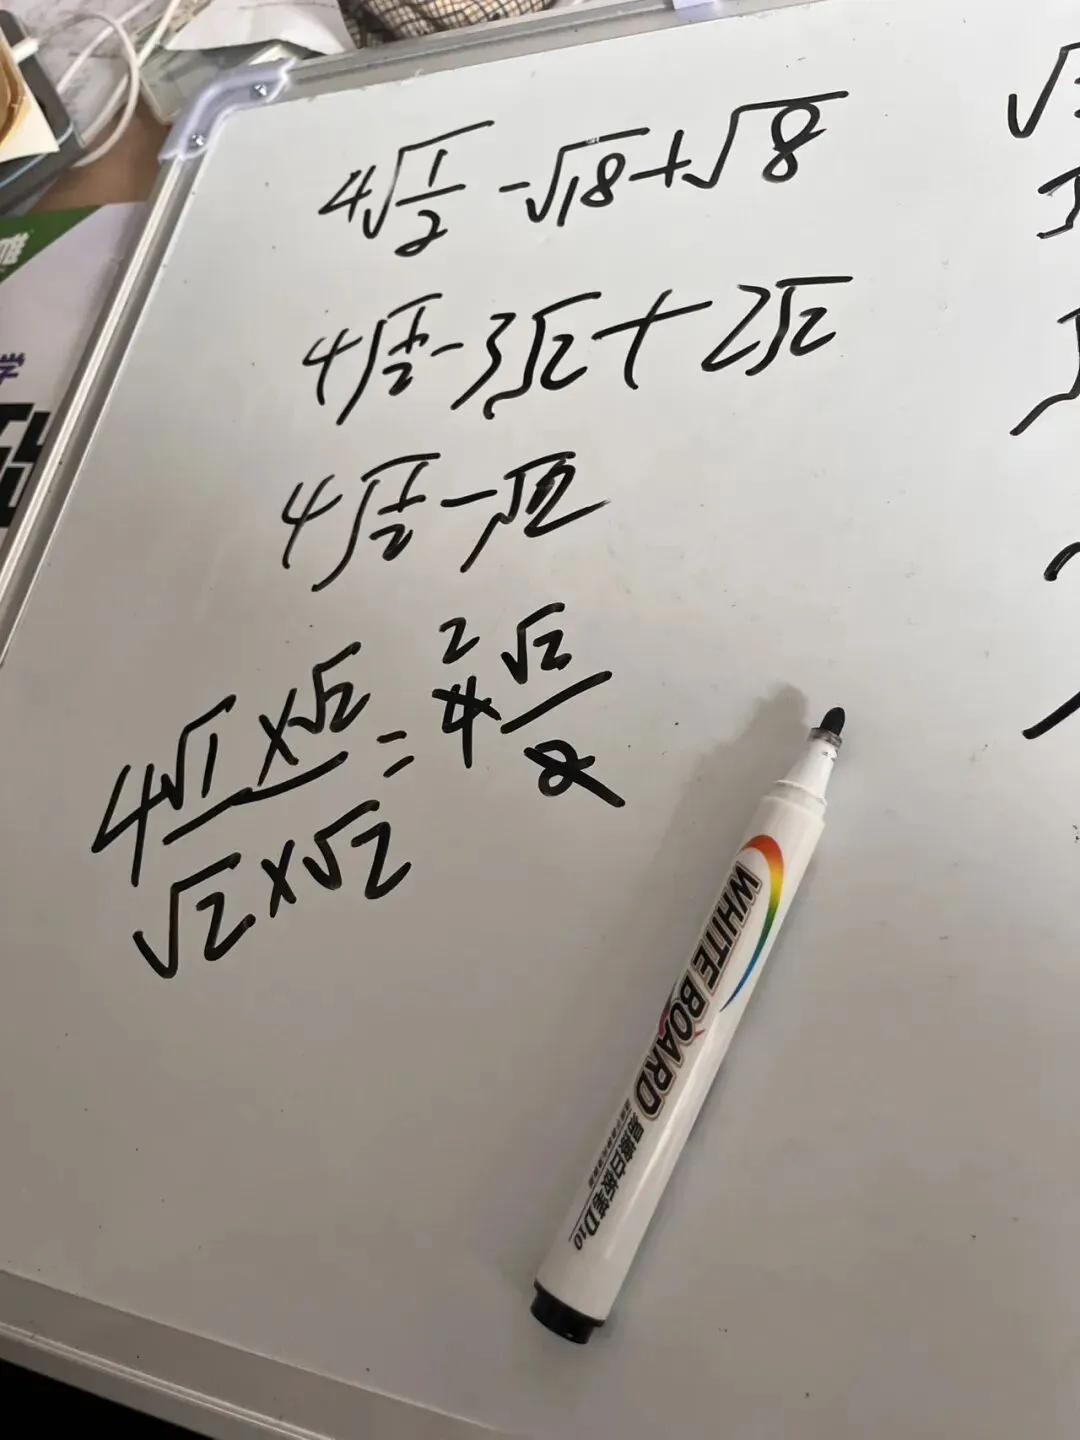 4√(1/2) - √18 + √8
4√(1/2) - 3√2 + 2√2
4√(1/2) - √2
4 (√1 × √2)/(√2 × √2) = 4 2 √2/2
WHITE BOARD
易擦白板笔 D10